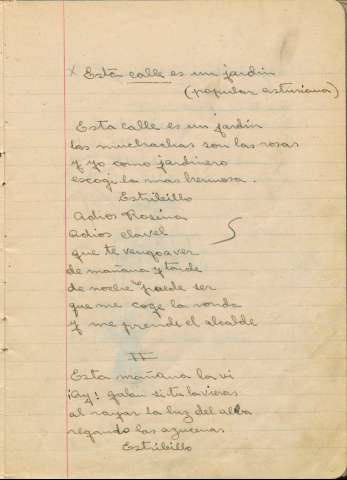 x Esta calle es un jardin
(popular asturiana)
Esta calle es un jardin
las muchachas son las rosas
y yo como jardinero
escogi la mas hermosa.
Estribillo
Adios Rosina
Adios clavel
que te vengo a ver
de mañana y tarde
de noche no puede ser
que me coge la ronda
y me prende el alcalde
II
Esta mañana la vi
¡Ay! galan si tu la vieras
al rayar la luz del alba
regando las azucenas
Estribillo